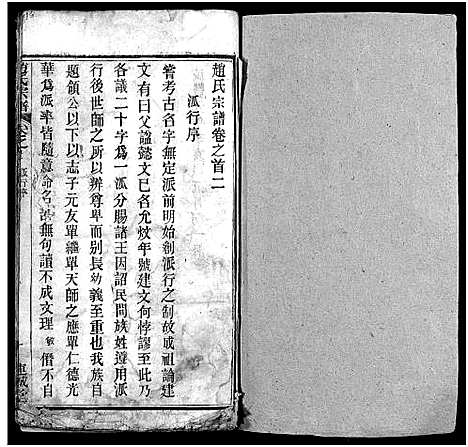 趙氏宗譜卷之首二
派行序
嘗考古名字無定派前明始創派行之制故成祖論建
文有曰父諡懿文已名允炆年號建文何悖謬至此乃
各議二十字為一派分賜諸王因詔民間族姓遵用派
行後世師之所以辨尊卑而别長幼義至重也我族自
題領公以下以志子元友單繼單天師之應單仁德光
華為派率皆隨意命名漫無句讀不成文理敏僭不自
趙氏宗譜
派行序